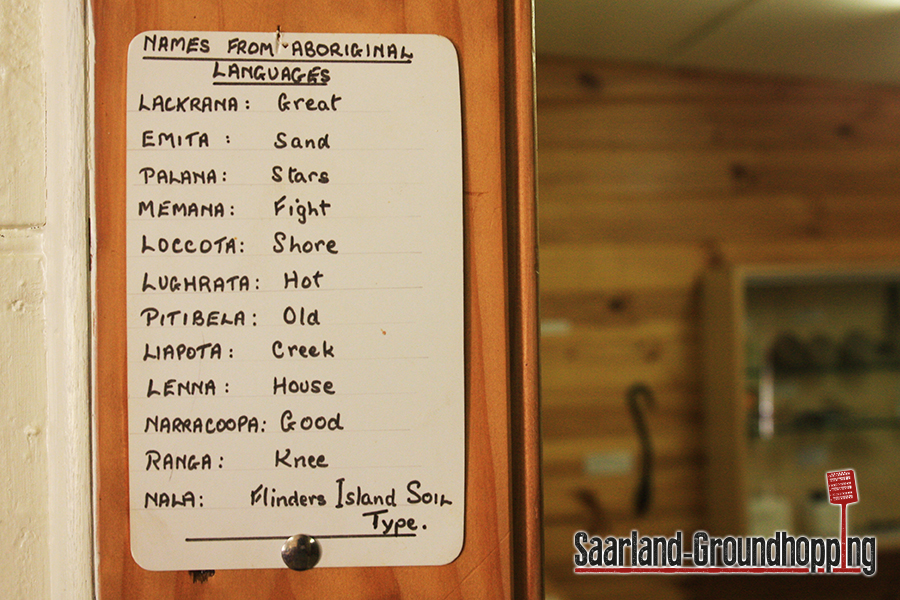 NAMES FROM ABORIGINAL
LANGUAGES
LACKRANA: Great
EMITA: Sand
PALANA: Stars
MEMANA: Fight
LOCCOTA: Shore
LUGHRATA: Hot
PITIBELA: Old
LIAPOTA: Creek
LENNA: House
NARRACOOPA: Good
RANGA: Knee
NALA: Flinders Island Soil
Type.
Saarland-Groundhopping